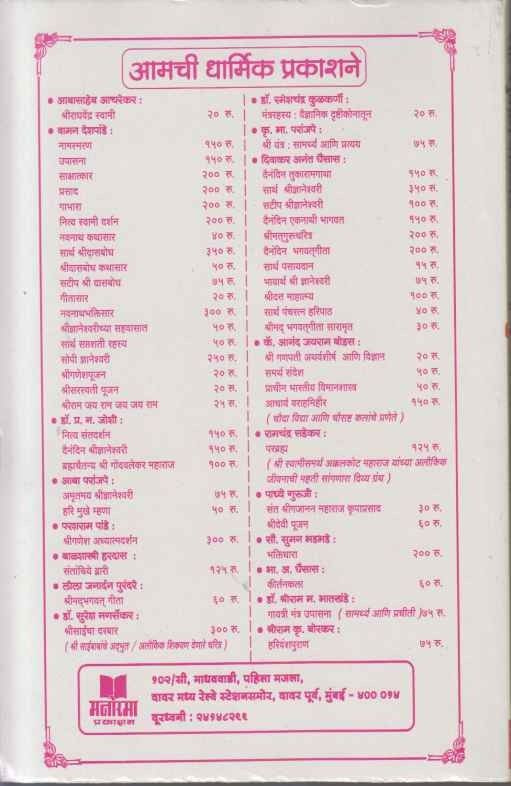 आमची धार्मिक प्रकाशने
• आबासाहेब आचरेकर :
श्रीराघवेंद्र स्वामी २० रु.
• वामन देशपांडे :
नामस्मरण १५० रु.
उपासना १५० रु.
साक्षात्कार २०० रु.
प्रसाद २०० रु.
गाभारा २०० रु.
नित्य स्वामी दर्शन २०० रु.
नवनाथ कथासार ४० रु.
सार्थ श्रीदासबोध ३५० रु.
श्रीदासबोध कथासार ५० रु.
सटीप श्री दासबोध ७५ रु.
गीतासार २० रु.
नवनाथभक्तिसार ३०० रु.
श्रीज्ञानेश्वरीच्या सहवासात ५० रु.
सार्थ सप्तशती रहस्य ५० रु.
सोपी ज्ञानेश्वरी २५० रु.
श्रीगणेशपूजन २० रु.
श्रीसरस्वती पूजन २० रु.
श्रीराम जय राम जय जय राम २५ रु.
• डॉ. प्र. न. जोशी :
नित्य संतदर्शन १५० रु.
दैनंदिन श्रीज्ञानेश्वरी १५० रु.
ब्रह्मचैतन्य श्री गोंदवलेकर महाराज १०० रु.
• आबा परांजपे :
अमृतमय श्रीज्ञानेश्वरी ७५ रु.
हरि मुखे म्हणा ५० रु.
• परशराम पांडे :
श्रीगणेश अध्यात्मदर्शन ३०० रु.
• बाळशास्त्री हरदास :
संतांचिये द्वारी १२५ रु.
• लीला जनार्दन पुरंदरे :
श्रीमद्भगवत् गीता ६० रु.
• डॉ. सुरेश मणसेरकर :
श्रीसाईंचा दरबार ३०० रु.
( श्री साईबाबांचे अद्भुत / अलौकिक शिकवण देणारे चरित्र )
• डॉ. रमेशचंद्र कुळकर्णी :
मंत्ररहस्य : वैज्ञानिक दृष्टीकोनातून २० रु.
• कृ. भा. परांजपे :
श्री यंत्र : सामर्थ्य आणि प्रत्यय ७५ रु.
• दिवाकर अनंत घैसास :
दैनंदिन तुकारामगाथा १५० रु.
सार्थ श्रीज्ञानेश्वरी ३५० रु.
सटीप श्रीज्ञानेश्वरी १०० रु.
दैनंदिन एकनाथी भागवत १५० रु.
श्रीमत्गुरुचरित्र २०० रु.
दैनंदिन भगवत्‌गीता २०० रु.
सार्थ पसायदान १५ रु.
भावार्थ श्री ज्ञानेश्वरी ७५ रु.
श्रीदत्त माहात्म्य १०० रु.
सार्थ पंचरत्न हरिपाठ ४० रु.
श्रीमद् भगवत्‌गीता सारामृत ३० रु.
• कॅ. आनंद जयराम बोडस :
श्री गणपती अथर्वशीर्ष आणि विज्ञान २० रु.
समर्थ संदेश ५० रु.
प्राचीन भारतीय विमानशास्त्र ५० रु.
आचार्य वराहमिहीर १५० रु.
( चौदा विद्या आणि चौसष्ठ कलांचे प्रणेते )
• रामचंद्र सडेकर :
परब्रह्म १२५ रु.
( श्री स्वामीसमर्थ अक्कलकोट महाराज यांच्या अलौकिक
जीवनाची महती सांगणारा दिव्य ग्रंथ )
• पाध्ये गुरुजी :
संत श्रीगजानन महाराज कृपाप्रसाद ३० रु.
श्रीदेवी पूजन ६० रु.
• सौ. सुमन भडभडे :
भक्तिधारा २०० रु.
• भा. अ. घैसास :
कीर्तनकला ६० रु.
• डॉ. श्रीराम म. भातखंडे :
गायत्री मंत्र उपासना ( सामर्थ्य आणि प्रचीती )७५ रु.
• श्रीराम कृ. बोरकर :
हरिवंशपुराण ७५ रु.
मनोरमा
प्रकाशन
१०२/सी, माधववाडी, पहिला मजला,
दादर मध्य रेल्वे स्टेशनसमोर, दादर पूर्व, मुंबई - ४०० ०१४
दूरध्वनी : २४१४८२९९